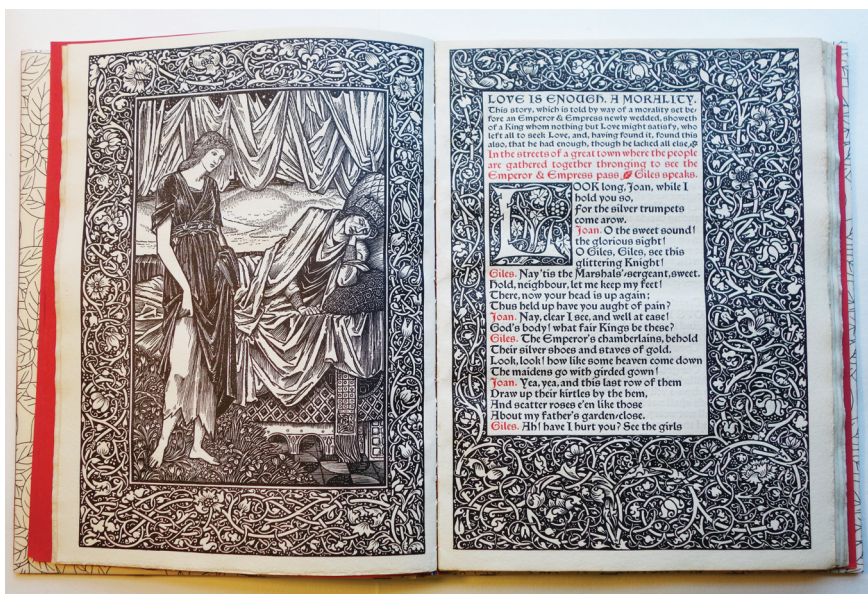 LOVE IS ENOUGH. A MORALITY.
This story, which is told by way of a morality set be-
fore an Emperor & Empress newly wedded, showeth
of a King whom nothing but Love might satisfy, who
left all to seek Love, and, having found it, found this
also, that he had enough, though he lacked all else.
In the streets of a great town where the people
are gathered together thronging to see the
Emperor & Empress pass. Giles speaks.
LOOK long, Joan, while I
hold you so,
For the silver trumpets
come arow.
Joan. O the sweet sound!
the glorious sight!
O Giles, Giles, see this
glittering Knight!
Giles. Nay 'tis the Marshals'-sergeant, sweet.
Hold, neighbour, let me keep my feet!
There, now your head is up again;
Thus held up have you aught of pain?
Joan. Nay, clear I see, and well at ease!
God's body! what fair Kings be these?
Giles. The Emperor's chamberlains, behold
Their silver shoes and staves of gold.
Look, look! how like some heaven come down
The maidens go with girded gown!
Joan. Yea, yea, and this last row of them
Draw up their kirtles by the hem,
And scatter roses e'en like those
About my father's garden-close.
Giles. Ah! have I hurt you? See the girls